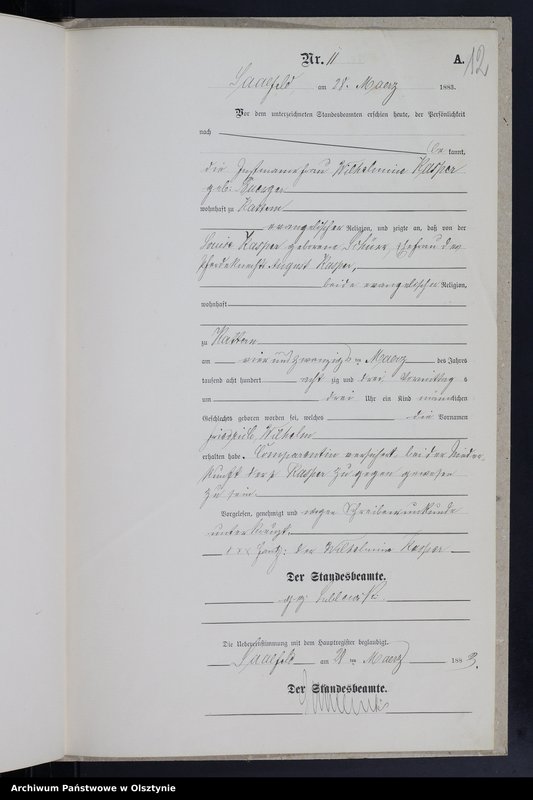 Nr. 11
A.
12
Saalfeld am 28. Maerz 1883.
Vor dem unterzeichneten Standesbeamten erschien heute, der Persönlichkeit
nach
be kannt,
die Instmannsfrau Wilhelmine Kasper
geb.
wohnhaft zu Kattern
evangelischer Religion, und zeigte an, daß von der
Louise Kasper geborene Schürr, Ehefrau des
Pferdeknechts August Kasper,
beide evangelischer Religion,
wohnhaft
zu Kattern
am vier und zwanzigsten Maerz des Jahres
tausend acht hundert acht zig und drei Vormittags
um drei Uhr ein Kind männlichen
Geschlechts geboren worden sei, welches die Vornamen
Friedrich Wilhelm
erhalten habe. Comparentin versichert bei der Nieder-
kunft der Kasper zu gegen gewesen
zu sein.
Vorgelesen, genehmigt und wegen Schreibensunkunde
unterkreuzt.
xxx Hdz: der Wilhelmine Kasper
Der Standesbeamte.
gez
Die Uebereinstimmung mit dem Hauptregister beglaubigt.
Saalfeld am 28 ten Maerz 1883.
Der Standesbeamte.
Archiwum Państwowe w Olsztynie